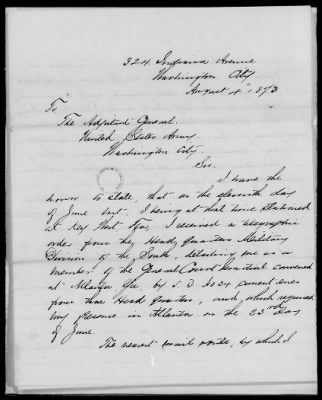 324 Indiana Avenue
Washington City
August 4" 1873
To
The Adjutant General.
United States Army.
Washington City
Sir.
I have the
honor to state, that on the eleventh day
of June last, I being at that time stationed
at Key West Fla, I received a telegraphic
order from the Head Quarters Military
Division of the South, detailing me as a
member of the General Court Martial convened
at Atlanta Ga, by S.O. No 34 current series
from that Head Quarters, and which required
my presence in Atlanta on the 23rd day
of June.
The nearest mail route, by which I